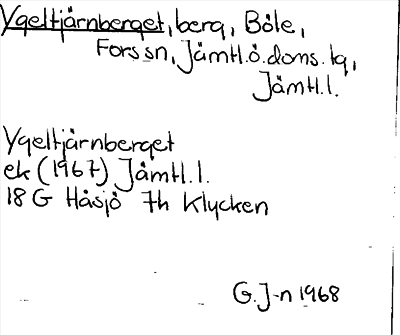 Ygeltjärnberget, berg, Böle,
Fors sn, Jämtl. ö. doms. tg,
Jämtl. l.
Ygeltjärnberget
ek (1967) Jämtl. l.
18 G Håsjö 7h Klycken
G. J-n 1968